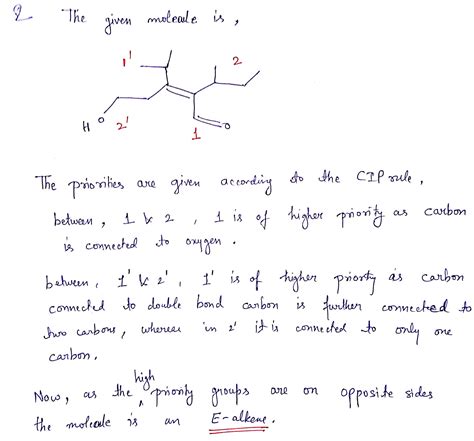 Q The given molecule is ,
1' 2
H O 2' 1 O
The priorities are given according to the CIP rule ,
between , 1 & 2 , 1 is of higher priority as carbon
is connected to oxygen .
between , 1' & 2' , 1' is of higher priority as carbon
connected to double bond carbon is further connected to
two carbons , whereas in 2' it is connected to only one
carbon .
Now , as the high priority groups are on opposite sides
the molecule is an E-alkene .